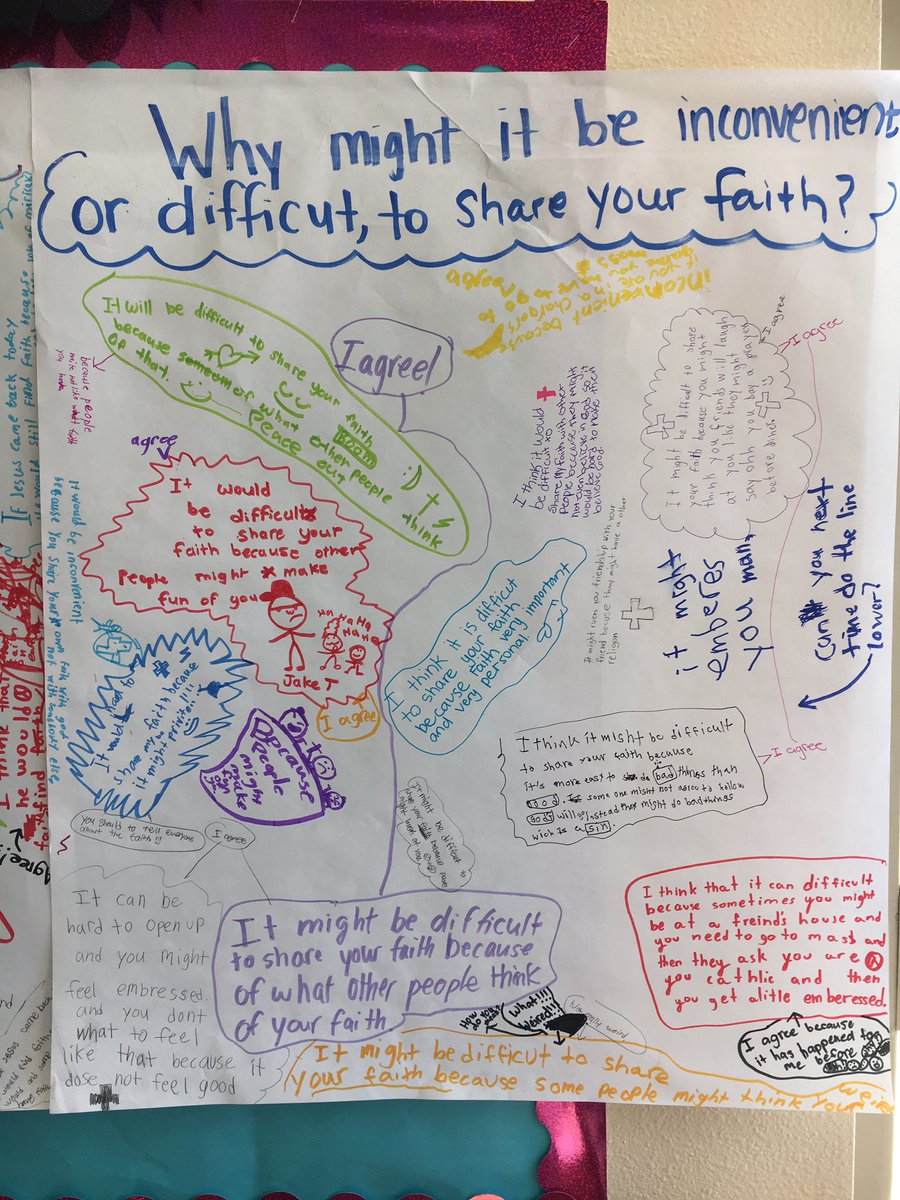 Why might it be inconvenient
or difficut, to share your faith?
It will be difficult to share your faith
because some of what other people think
of that.
Peace out
I agree!
inconvenient because
if you are in a
you have to go to
same mass
I agree
I agree
It might be difficult to share
your faith because you might
think your friends will laugh
at you like they might
say ohh you say a prayer
before diner
because people
mite not like
agree
It would
be difficult
to share your
faith because other
People might make
fun of you
HA HA
Ha Ha
Jake T
I agree
I think it would
be difficult to
share my faith with other
people because they might
not even believe in God so it
would be hard to make them
believe God
It might ruen you friendship with your
friend because they might have a other
religion
it might
emberes
you man,
Can you next
time do the line
lower?
I agree
I think it is difficult
to share your faith
because faith very important
and very personal!
It would by inconvenient
because you share your
If Jesus came back today
It would
share my faith because
it might privite!!!!
because
people
might
make
fun of
I think it might be difficult
to share your faith because
it's more easy to do bad things than
good. some one might not agree to follow
gods will so instead they might do bad things
wich is a sin
You should to tell everyone
about the faith
I agree
It might be difficult
It can be
hard to open up
and you might
feel embressed.
and you dont
what to feel
like that because it
dose not feel good
It might be difficult
to share your faith because
of what other people think
of your faith
I think that it can difficult
because sometimes you might
be at a freind's house and
you need to go to mass and
then they ask you are
you cathlic and then
you get alitle emberessed.
I agree because
it has happened to
me before
What!!!
Weired!!!
It might be difficut to share
your faith because some people might think your
I think that
he would
Agree!!